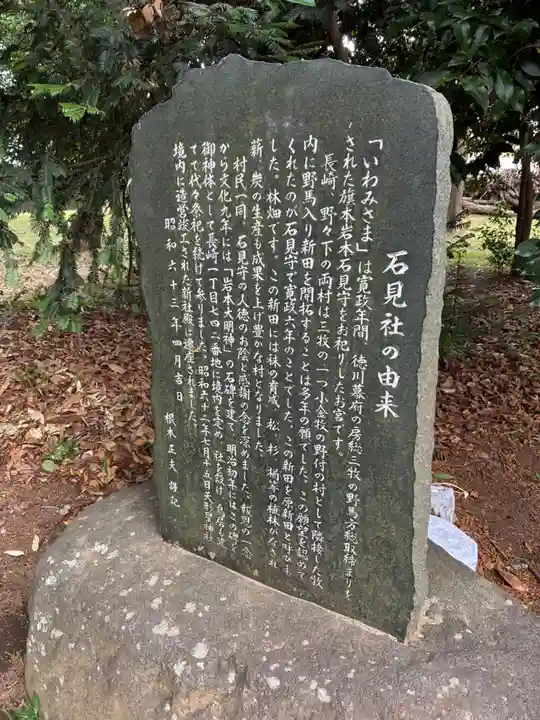 石見社の由来
「いわみさま」は寛政年間、徳川幕府の房総三牧の野馬方総取締まりを
された旗本岩本石見守をお祀りしたお宮です。
長崎、野々下の両村は三牧の一つ小金牧の野付の村として隣接した牧
内に野馬入り新田を開拓することは多年の願でした。この願望を認めて
くれたのが石見守で寛政六年のことでした。この新田を原新田と呼びま
した。林畑です。この新田には秣の育成、松、杉、楢等の植林がなされ
薪、炭の生産も成果を上げ豊かな村となりました。
村民一同、石見守の人徳のお陰と感謝の念を深めました。報恩の一念
から文化九年には「岩本大明神」の石碑を建て、明治初年にはこの碑を
御神体として長崎一丁目七四二番地に境内を定め、社を設け、鳥居を
てて代々祭祀を続けて参りました。昭和六十二年七月十五日天形星神社
境内に造営竣工された新社殿に遷座されました。
昭和六十三年四月吉日
根本正夫 謹記